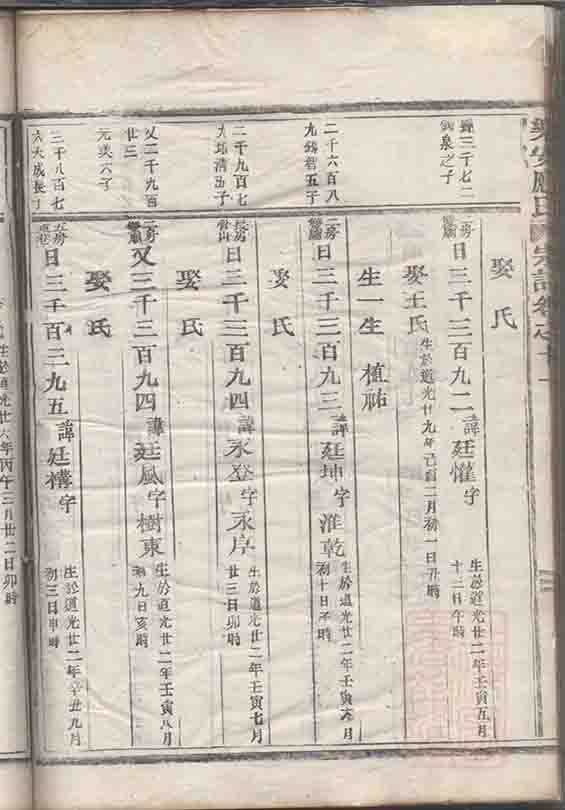 樂安�氏宗譜卷之十一
娶氏
三千七二
泉之子
二房
日三千三百九二諱廷懽字
生於道光廿二年壬寅五月
十三日午時
娶王氏
生於道光廿九年己酉二月初一日丑時
生一生 植祐
二千六百八
九 五子
二房
日三千三百九三諱廷坤字淮乾
生於道光廿二年壬寅六月
初十日 時
娶氏
二千九百七
九 清 子
長房
日三千三百九四諱永登字永序
生於道光廿二年壬寅七月
廿三日卯時
娶氏
又二千九百
廿三
元 六子
二房
又三千三百九四諱廷風字樹東
生於道光廿二年壬寅八月
初九日亥時
娶氏
二千八百七
六大成長子
日三千三百九五諱廷構字
生於道光廿二年辛丑九月
初三日申時
生於道光廿六年丙午三月廿二日卯時